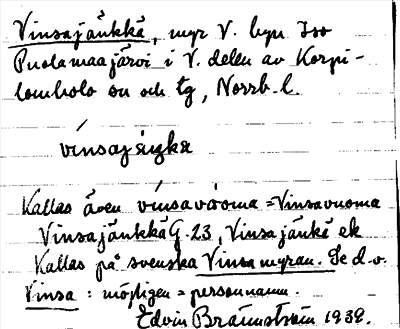 Vinsajänkkä, myr V. byn Iso
Puolamaajärvi i V. delen av Korpi-
lombolo sn och tg, Norrb. l.
vínsajäŋkæ
Kallas även vínsavuoma = Vinsavuoma
Vinsajänkkä G. 23, Vinsajänkä ek
Kallas på svenska Vinsamyran. Se d.o.
Vinsa : möjligen = personnamn.
Edvin Brännström 1932.